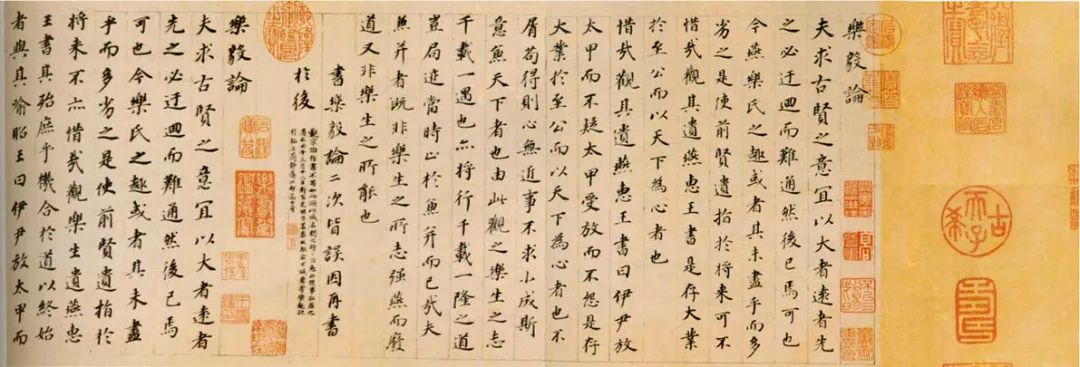 樂毅論
夫求古賢之意宜以大者遠者先
之必迂迴而難通然後已焉可也
今燕樂氏之趣或者其未盡乎而多
劣之是使前賢遺指於將来可不
惜哉觀其遺燕惠王書是存大業
於至公而以天下為心者也
惜哉觀其遺燕惠王書曰伊尹放
太甲而不疑太甲受放而不怨是存
大業於至公而以天下為心者也不
屑苟得則心無近事不求小成斯
意兼天下者也由此觀之樂生之志
千載一遇也亦将行千載一隆之道
豈局迹當時止於兼并而已哉夫
兼并者既非樂生之所志强燕而廢
道又非樂生之所能也
書樂毅論二次皆誤因再書
於後
樂毅論
夫求古賢之意宜以大者遠者
先之必迂迴而難通然後已焉
可也今樂氏之趣或者其未盡
乎而多劣之是使前賢遺指於
将来不亦惜哉觀樂生遺燕惠
王書其殆庶乎機合於道以終始
者與其喻昭王曰伊尹放太甲而
古希天子